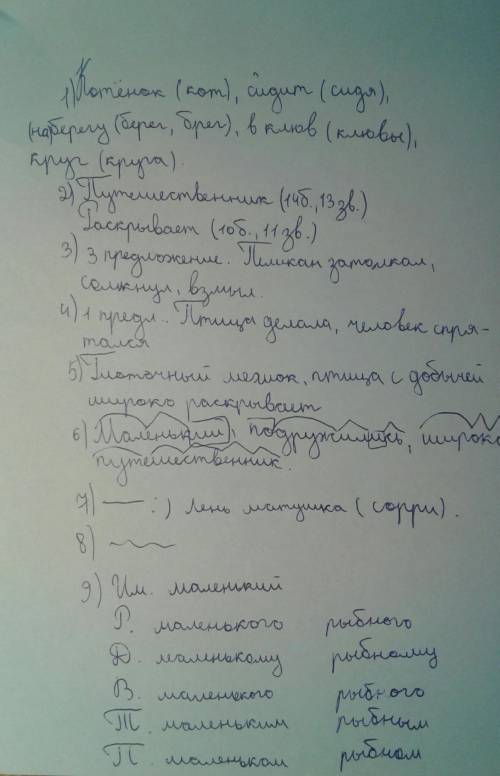 1) Котёнок (кот), сидит (сидя),
(на)берегу (берег, брег), в клюв (клювы),
круг (круга).
2) Путешественник (14б., 13 зв.)
Раскрывает (10б., 11 зв.)
3) 3 предложение. Пеликан затолкал,
сомкнул, взмыл.
4) 1 предл.. Птица делала, человек спря-
тался
5) Глоточный мешок, птица с добычей
широко раскрывает
6) Маленькими, подружились, широко
путешественник.
7) — :) Лень матушка (сорри).
8)
9) Им. маленький
Р. маленького рыбного
Д. маленькому рыбному
В. маленького рыбного
Т. маленьким рыбным
П. маленьком рыбном